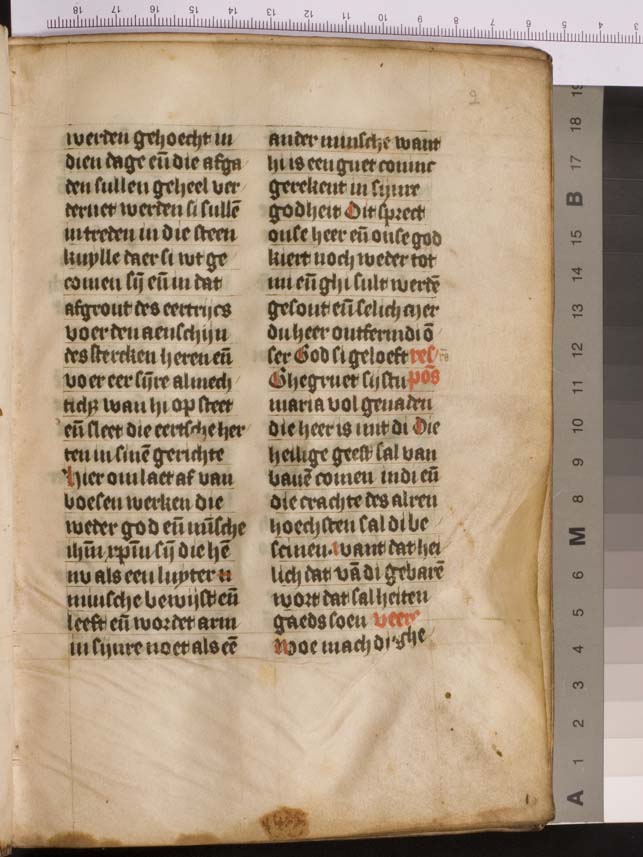 werden gehoecht in
dien dage eñ die afga
den sullen geheel ver
ternet werden si sullē
intreden in die steen
kuylle daer si wt ge
comen sij eñ in dat
afgront des eertrijcs
voer den aenschijn
des stercken heren eñ
voer eer sijnre almech
ticħ wan hi op steet
eñ sleet die eertsche her
ten in sinē gerichte
hier om laet af van
boesen werken die
weder god eñ mīsche
ihm̄ xpm̄ sij die hē
nv als een luyter n
minsche bewijst eñ
leeft eñ wordet arm
in sijnre noet als eē
ander minsche want
hi is een guet coninc
gerekent in sijnre
godheit Dit spreet
onse heer eñ onse god
kiert noch weder tot
mi eñ ghi sult werdē
gesont eñ selich ayer
du heer ontfermdi ō
ser God si geloeft res
Ghegruet sijstu pōs
maria vol genaden
die heer is mit di Die
heilige geest sal van
bauē comen indi eñ
die crachte des alren
hoechsten sal di be
scimen want dat hei
lich dat vā di gebarē
wort dat sal heiten
gaeds soen veers
Woe mach dissche
18 17 16 15 14 13 12 11 10 9 8 7 6 5 4 3
19
18
17
B
16
15
14
13
12
11
10
9
8
M
7
6
5
4
3
2
1
A